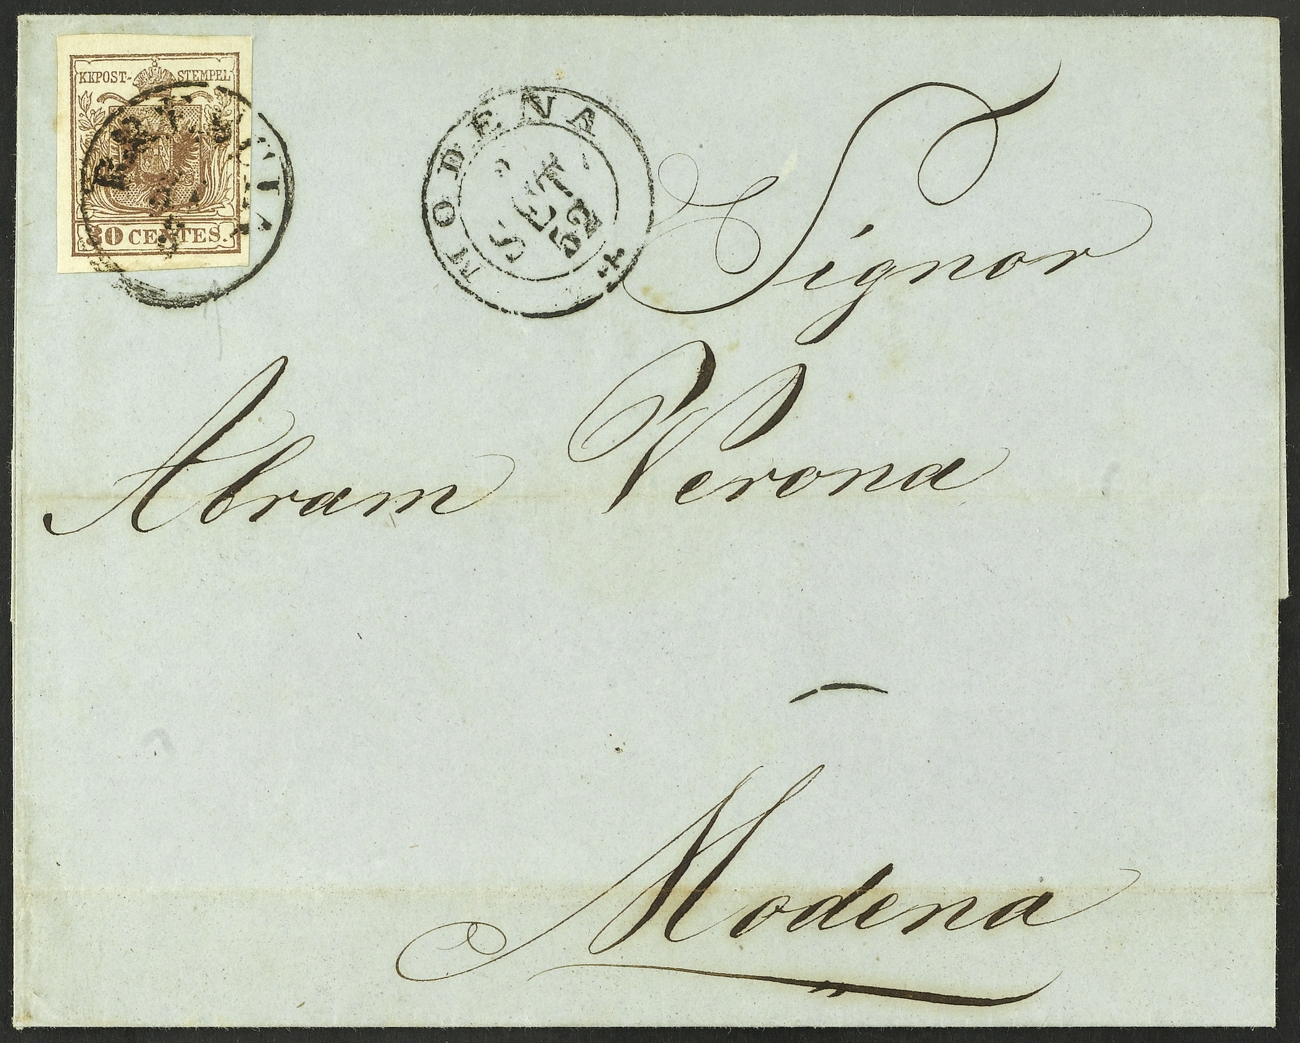 KKPOST-STEMPEL
30 CENTES.
MODENA
SET.
52
Signor
Abram Verona
Modena